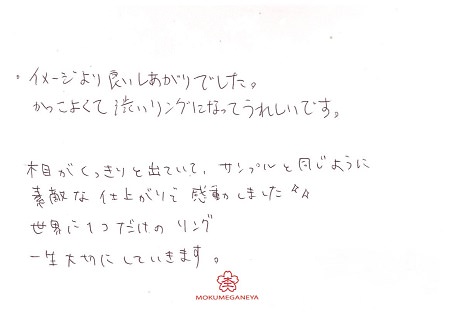 ・イメージより良いしあがりでした。
かっこよくて渋いリングになってうれしいです。
木目がくっきりと出ていて、サンプルと同じように
素敵な仕上がりで感動しました
世界に1つだけのリング
一生大切にしていきます。
MOKUMEGANEYA